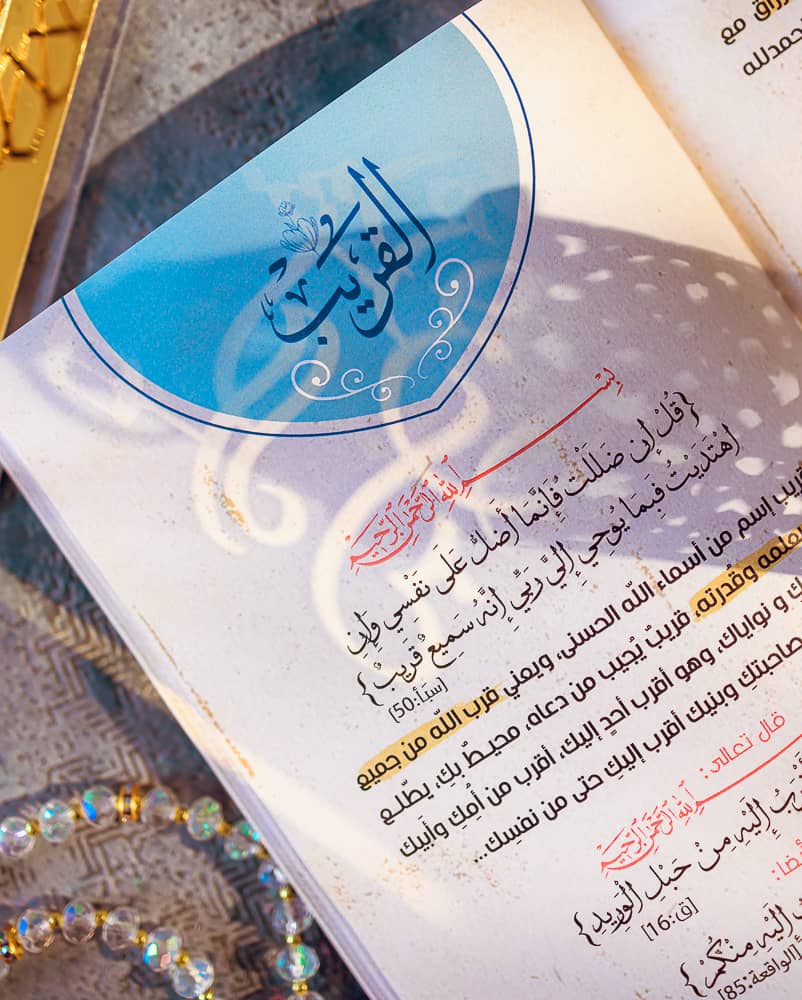 القريب
بِسْمِ اللهِ الرَّحْمَنِ الرَّحِيْمِ
{قُلْ إِن ضَلَلْتُ فَإِنَّمَا أَضِلُّ عَلَى نَفْسِي وَإِنِ
اهْتَدَيْتُ فَبِمَا يُوحِي إِلَيَّ رَبِّي إِنَّهُ سَمِيعٌ قَرِيبٌ}
[سبأ:50]
إسم من أسماء الله الحسنى، ويعني قرب الله من جميع
وقُدرته، قريبٌ يُجيب من دعاه، محيطٌ بكِ، يطّلع
و نواياك، وهو أقرب أحدٍ إليك، أقرب من أُمِكِ وأبيك
وبنيك أقرب إليكِ حتى من نفسِك...
قال تعالى:
اللهِ الرَّحْمَنِ الرَّحِيْمِ
إِلَيْهِ مِنْ حَبْلِ الْوَرِيدِ}
[ق:16]
إِلَيْهِ مِنْكُمْ}
[الواقعة:85]
مع